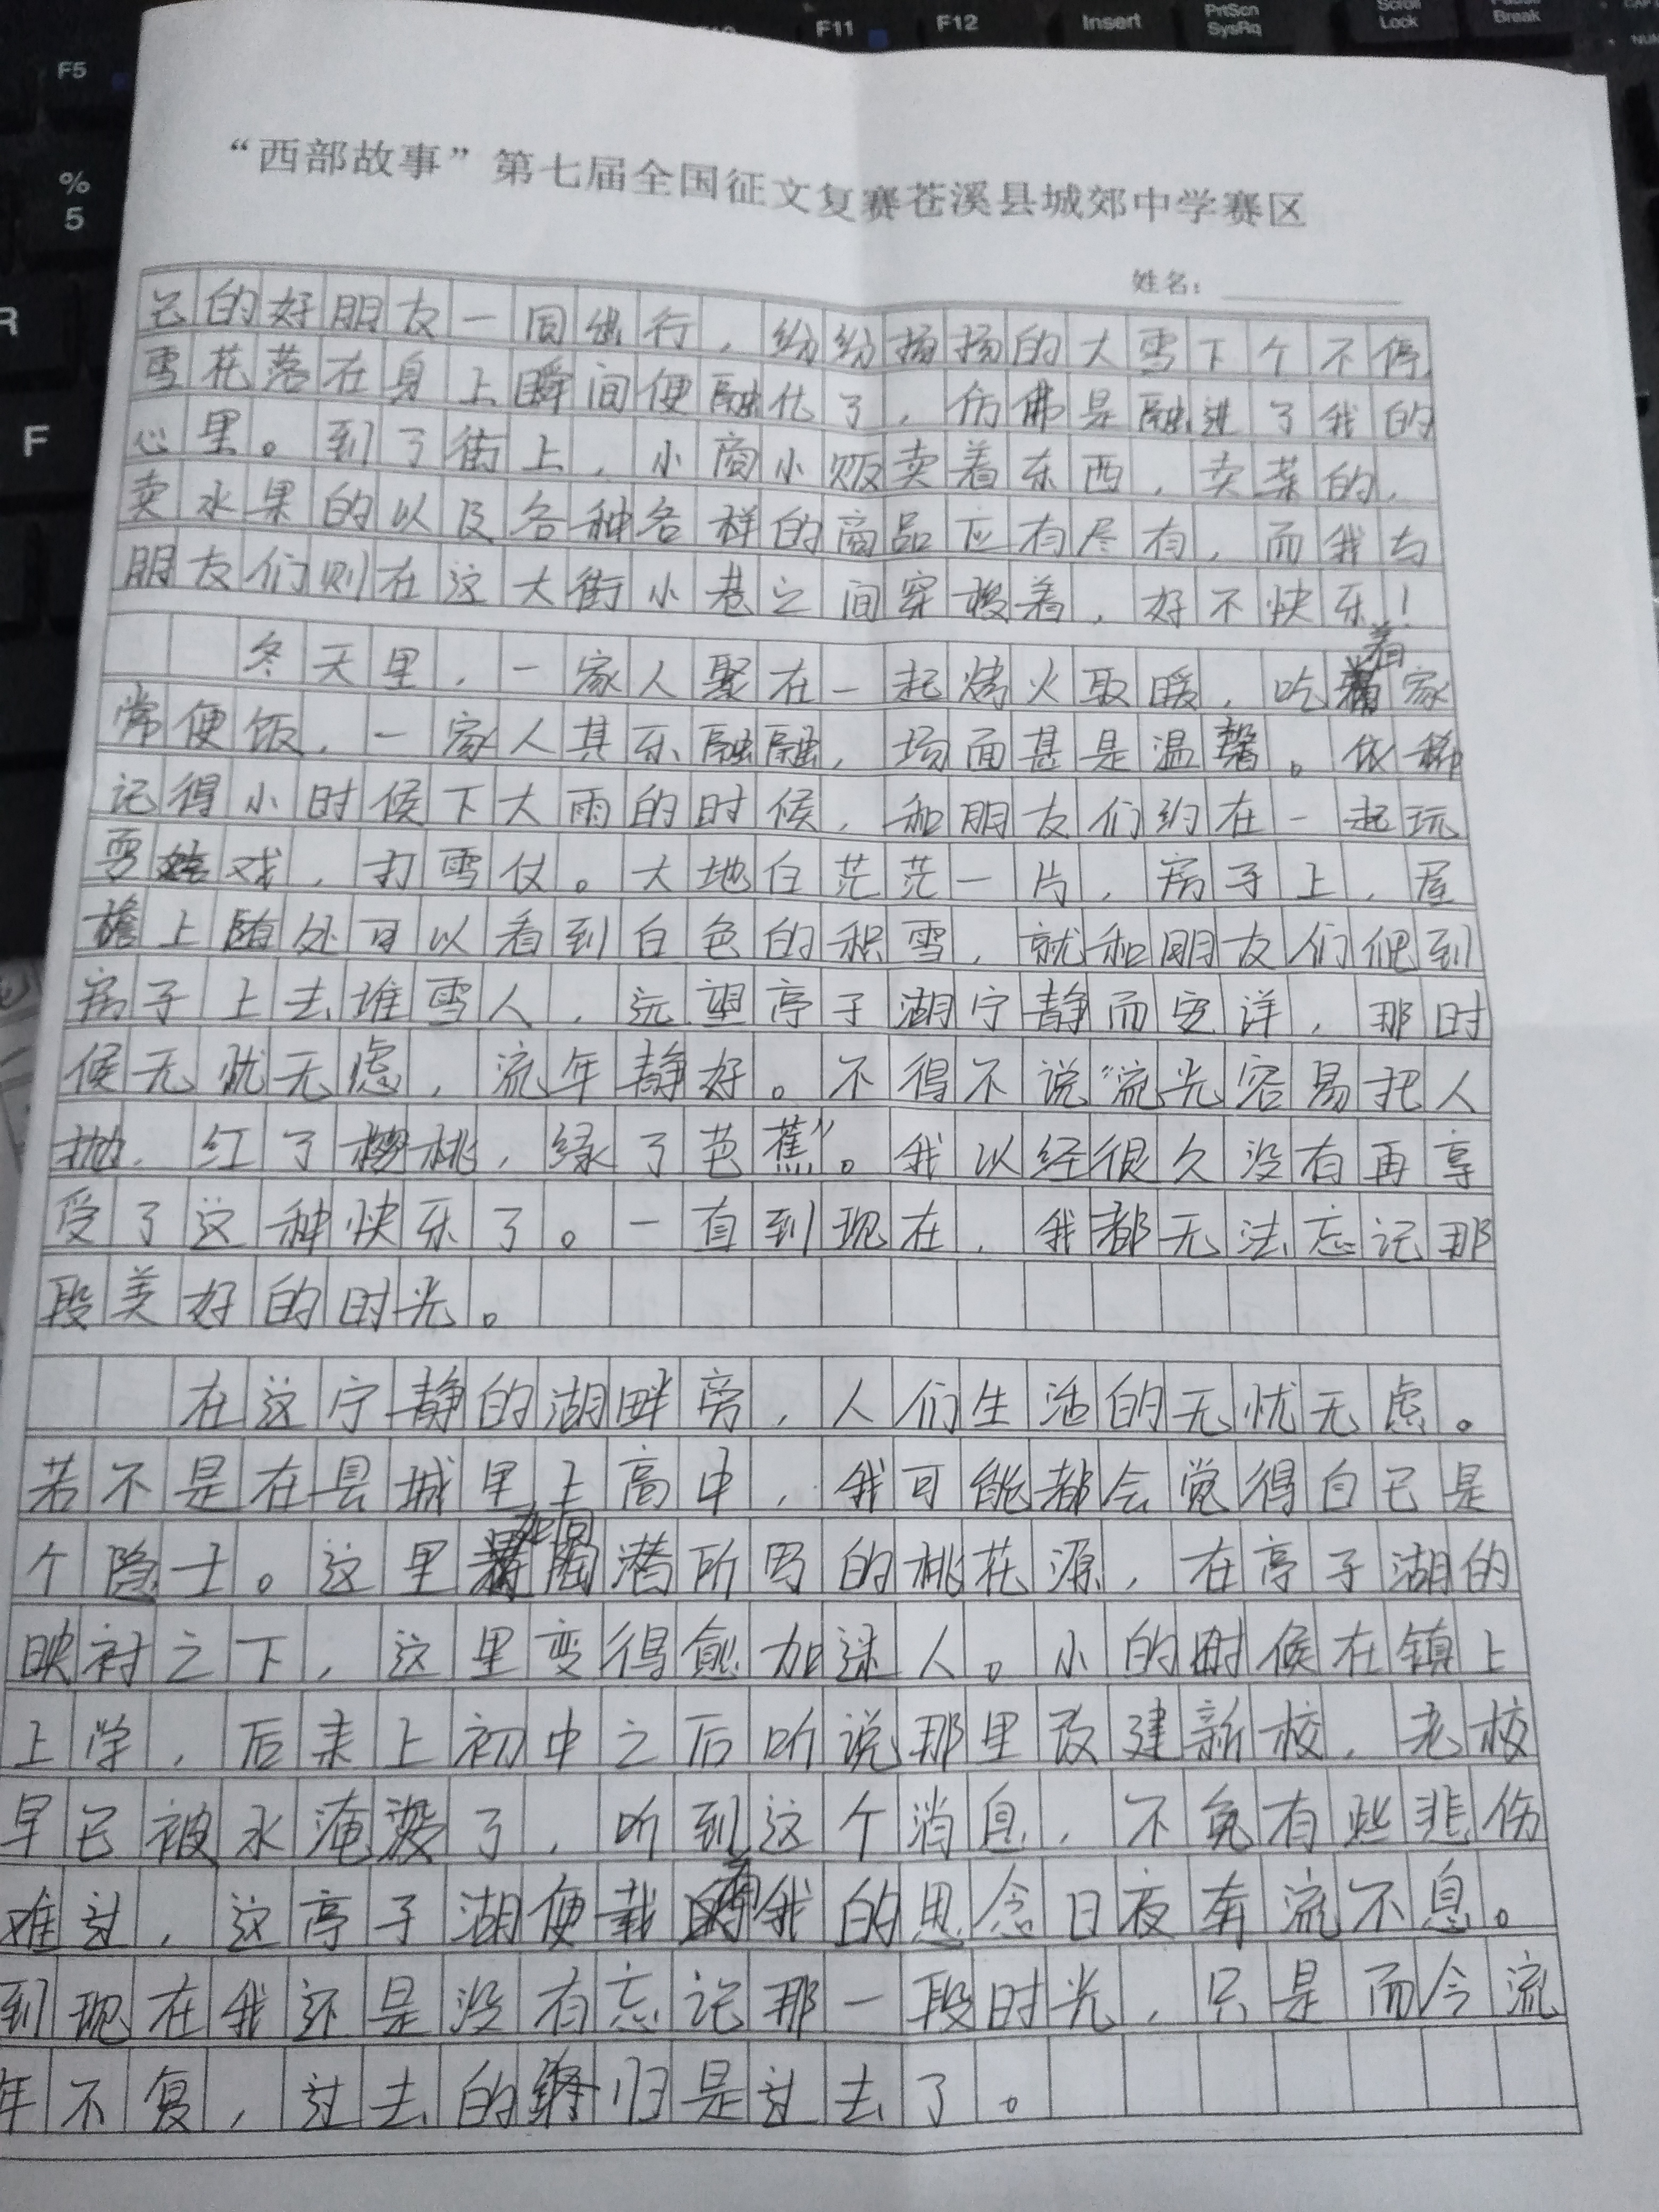 F5
F11
F12
Insert
PrtScn
SysRq
Scroll
Lock
Break
%
5
R
F
“西部故事”第七届全国征文复赛苍溪县城郊中学赛区
姓名：
己的好朋友一同出行，纷纷扬扬的大雪下个不停，
雪花落在身上瞬间便融化了，仿佛是融进了我的
心里。到了街上，小商小贩卖着东西，卖菜的，
卖水果的以及各种各样的商品应有尽有，而我与
朋友们则在这大街小巷之间穿梭着，好不快乐！
冬天里，一家人聚在一起烤火取暖，吃着家
常便饭，一家人其乐融融，场面甚是温馨。依稀
记得小时候下大雨的时候，和朋友们约在一起玩
耍嬉戏，打雪仗。大地白茫茫一片，房子上，屋
檐上随处可以看到白色的积雪，就和朋友们爬到
房子上去堆雪人，远望亭子湖宁静而安详，那时
候无忧无虑，流年静好。不得不说“流光容易把人
抛，红了樱桃，绿了芭蕉”。我以经很久没有再享
受了这种快乐了。一直到现在，我都无法忘记那
段美好的时光。
在这宁静的湖畔旁，人们生活的无忧无虑。
若不是在县城里上高中，我可能都会觉得自己是
个隐士。这里如同陶潜所写的桃花源，在亭子湖的
映衬之下，这里变得愈加迷人。小的时候在镇上
上学，后来上初中之后听说那里改建新校，老校
早已被水淹没了，听到这个消息，不免有些悲伤
难过，这亭子湖便载着我的思念日夜奔流不息。
到现在我还是没有忘记那一段时光，只是而今流
年不复，过去的终归是过去了。